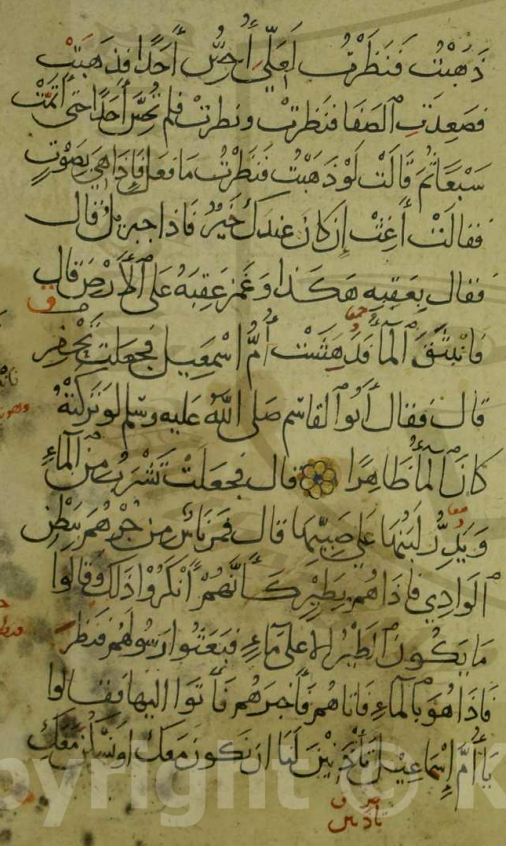 ذَهَبْتُ فَنَظَرْتُ لَعَلِّي أُحِسُّ أَحَدًا فذهَبَتْ
فصَعِدَتِ الصَفَا فنَظرتْ ونظرتْ فلم تُحِسَّ أَحَدًا حتى أتمَّتْ
سَبْعًا ثم قَالَتْ لَوْ ذَهَبْتُ فنَظَرْتُ مَا فعَل فإِذَا هِيَ بِصَوْتٍ
ففَالَتْ أَغِثْ إِن كانَ عِندَكَ خَيْرٌ فَاذا جبريلُ قال
ففال بِعَقِبِهِ هَكَذا وَغَمَز عَقِبَهُ عَلى الأَرْضِ قال
فَانبَثَقَ المآءُ فَدَهِشَتْ أُمُّ اسْمعيل فجَعَلتْ تَحْفِر
قال ففال أَبُو القَاسم صَلى اللَّه عَليه وسَلم لو تركَتْهُ
كانَ المآءُ ظَاهِرًا قال فجعَلتْ تَشْرَبُ مِنَ المآءِ
وَيَدِرُّ لبَنُهَا على صَبِيِّهَا قال فمَرَّ نَاسٌ من جُرْهُمَ بِبَطْنِ
الوَادِي فاذَا هُم بِطَيْرٍ كَأَنَّهُمْ أَنْكَرُوْا ذَلكَ وقَالوا
مَا يَكُونُ الطَيْرُ إلا على مَاءٍ فبَعَثُوا رَسُولهُم فنَظَر
فَاذَا هُوَ بالمآءِ فاتاهُم فَأَخبَرَهُم فَأَتَوا اليهَا فقَالوا
يَا أُمَّ إِسْمَاعِيل أَتَأْذَنِيْنَ لنَا ان نَكونَ مَعَكِ اوْ نَسْكُنَ مَعَكِ
تأذنين
Copyright © K